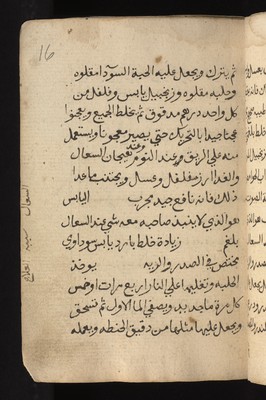 16
ثم يترك ويجعل عليه الحبة السودا مقلوه
وحلبه مقلوه وزنجبيل يابس وفلفل من
كل واحد درهم مدقوق ثم تخلط الجميع ويعجنوا
عجنا جيدا بالتحريك حتى يصير معجونا ويستعمل
منه على الريق وعند النوم هيجان السعال
والغدا ارز مفلفل وعسل ويجتنب ماعدا
ذلك فانه نافع جيد مجرب اليابس
هو الذي لا ينبذ صاحبه معه شي عند السعال
بلغم زيادة خلط بارد يابس سوداوي
محتقن في الصدر والريه يوخذ
الحلبه وتغليها على النار اربع مرات او خمس
كل مرة بماء جديد ويصفي الما الاول ثم تسحق
ويجعل عليها مثلها من دقيق الحنطه ويعمله
السعال سبب العلاج